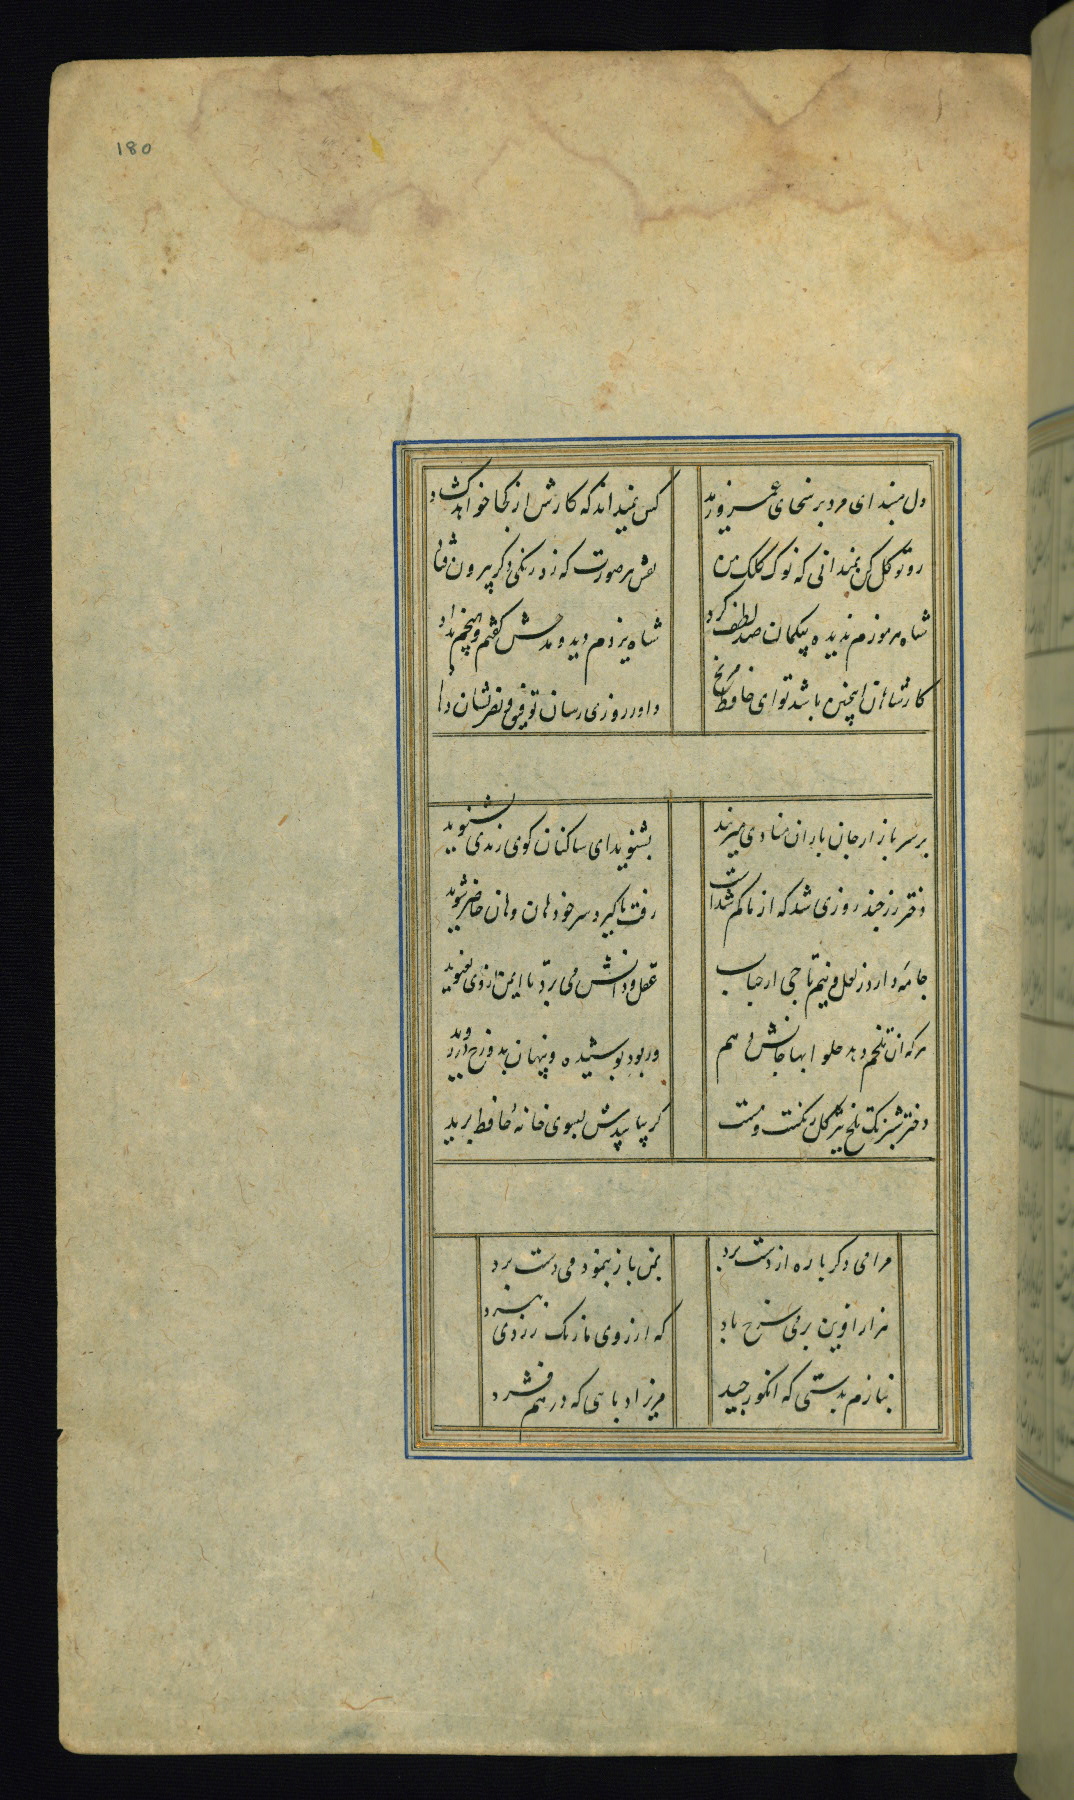 180
دل مبند ای مرد بر سخای عمرو زید
کس نمیداند که کارش از کجا خواهد گشاد
رو توکل کن نمیدانی که نوک کلک من
نقش هر صورت که زد رنگی دگر بیرون فتاد
شاه هرموزم ندیده بیگمان صد لطف کرد
شاه یزدم دید و مدحش گفتم و هیچم نداد
کار شاهان اینچنین باشد تو ای حافظ مرنج
داور روزی رسان توفیق و نصرتشان دهاد
بر سر بازار جان بازان منادی میزنند
بشنوید ای ساکنان کوی رندی بشنوید
دختر رز چند روزی شد که از ما گم شدست
رفت تا گیرد سر خود هان و هان حاضر شوید
جامهٔ دارد ز لعل و نیم تاجی از حباب
عقل و دانش می برد تا ایمن از وی نغنوید
هر که آن تلخم دهد حلوا بها جانش دهم
ور بود پوشیده و پنهان بدوزخ در روید
دختر شبرنگ تلخ تیز گلرنگست و مست
گر بیابیدش بسوی خانهٔ حافظ برید
مرا می دگر باره از دست برد
بمن باز بنمود می دست برد
هزار آفرین بر می سرخ باد
که از روی ما رنگ زردی ببرد
بنازم بدستی که انگور چید
مریزاد پایی که در هم فشرد